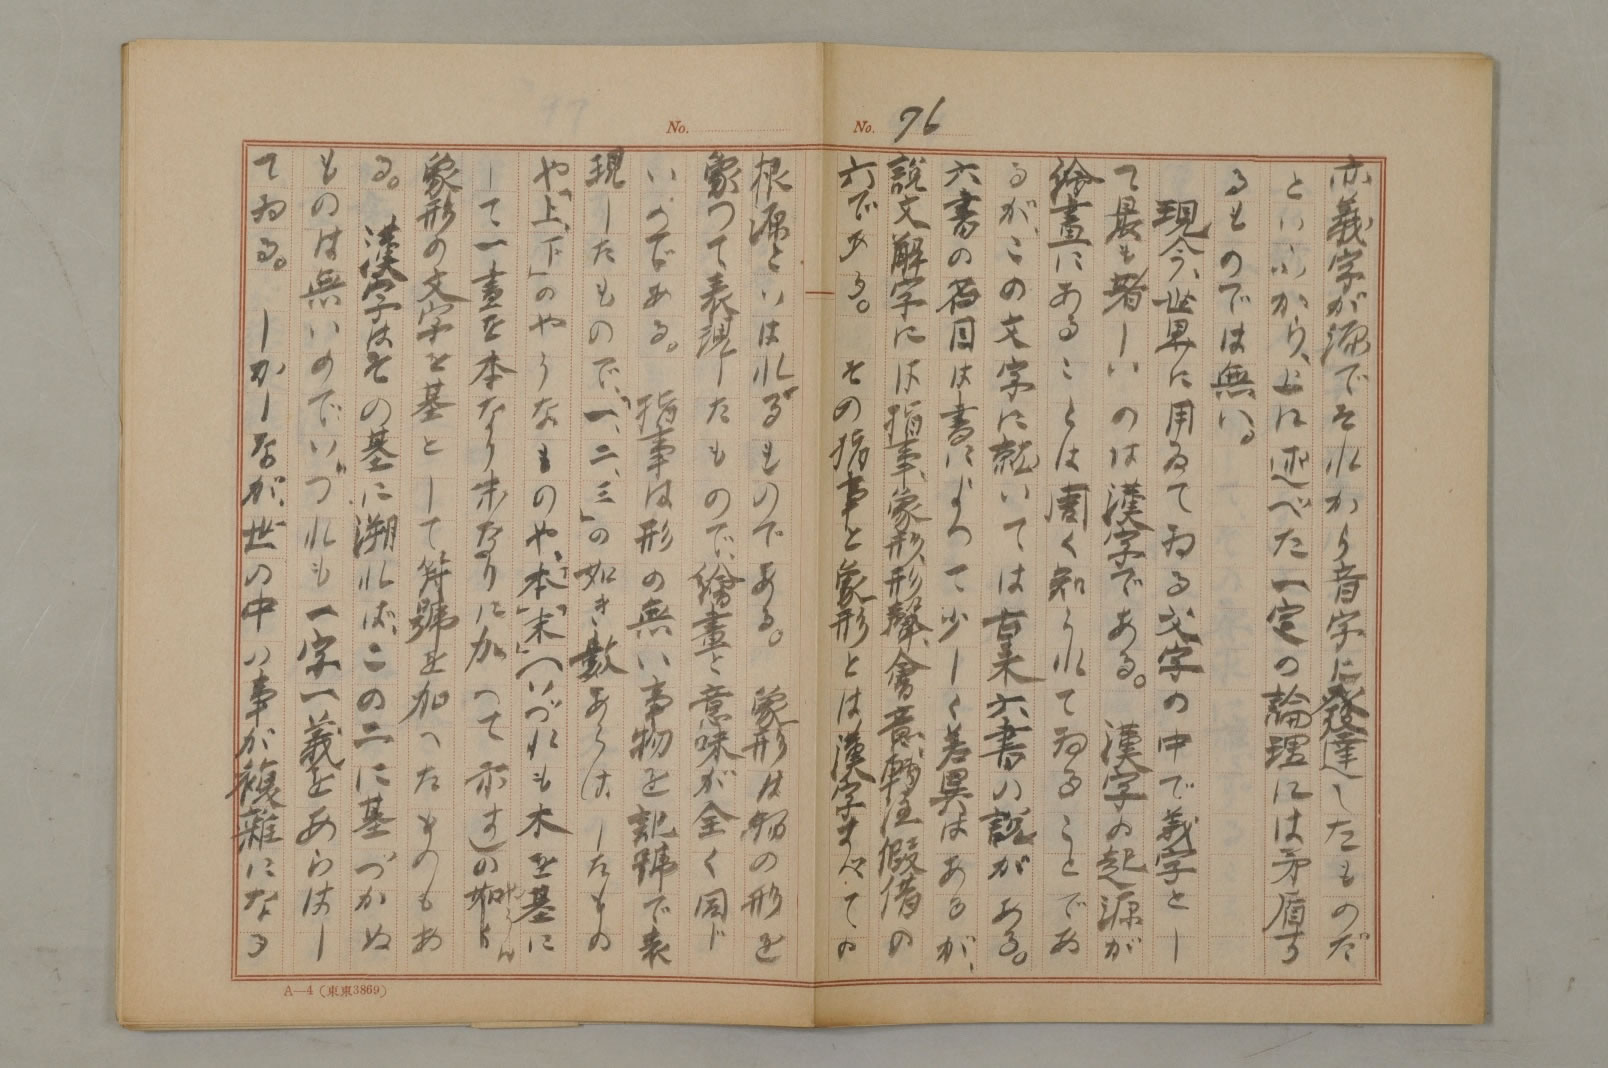 No. 76
亦義字が源でそれから音字に發達したものだ
といふから、上に述べた一定の論理には矛盾す
るものでは無い。
現今、世界に用ゐてゐる文字の中で義字とし
て最も著しいのは漢字である。漢字の起源が
繪畫にあることは周く知られてゐることであ
るが、この文字に就いては古來六書の說がある。
六書の名目は書によつて少しく差異はあるが、
說文解字には指事、象形、形聲、會意、轉注、假借の
六である。その指事と象形とは漢字すべての
No.
根源といはれるものである。象形は物の形を
象つて表現したもので、繪畫と意味が全く同じ
いのである。指事は形の無い事物を記號で表
現したもので、「一、二、三」の如き數あらはしたもの
や「上、下」のやうなものや、「本」「末」(いづれも木を基に
して一畫を本なり末なりに加へて示す)の如
象形の文字を基として符號を加へたものもあ
る。漢字はその基に溯れば、この二に基づかぬ
ものは無いのでいづれも一字一義をあらはし
てゐる。しかしながら、世の中の事が複雜になる
A—4(東東3869)